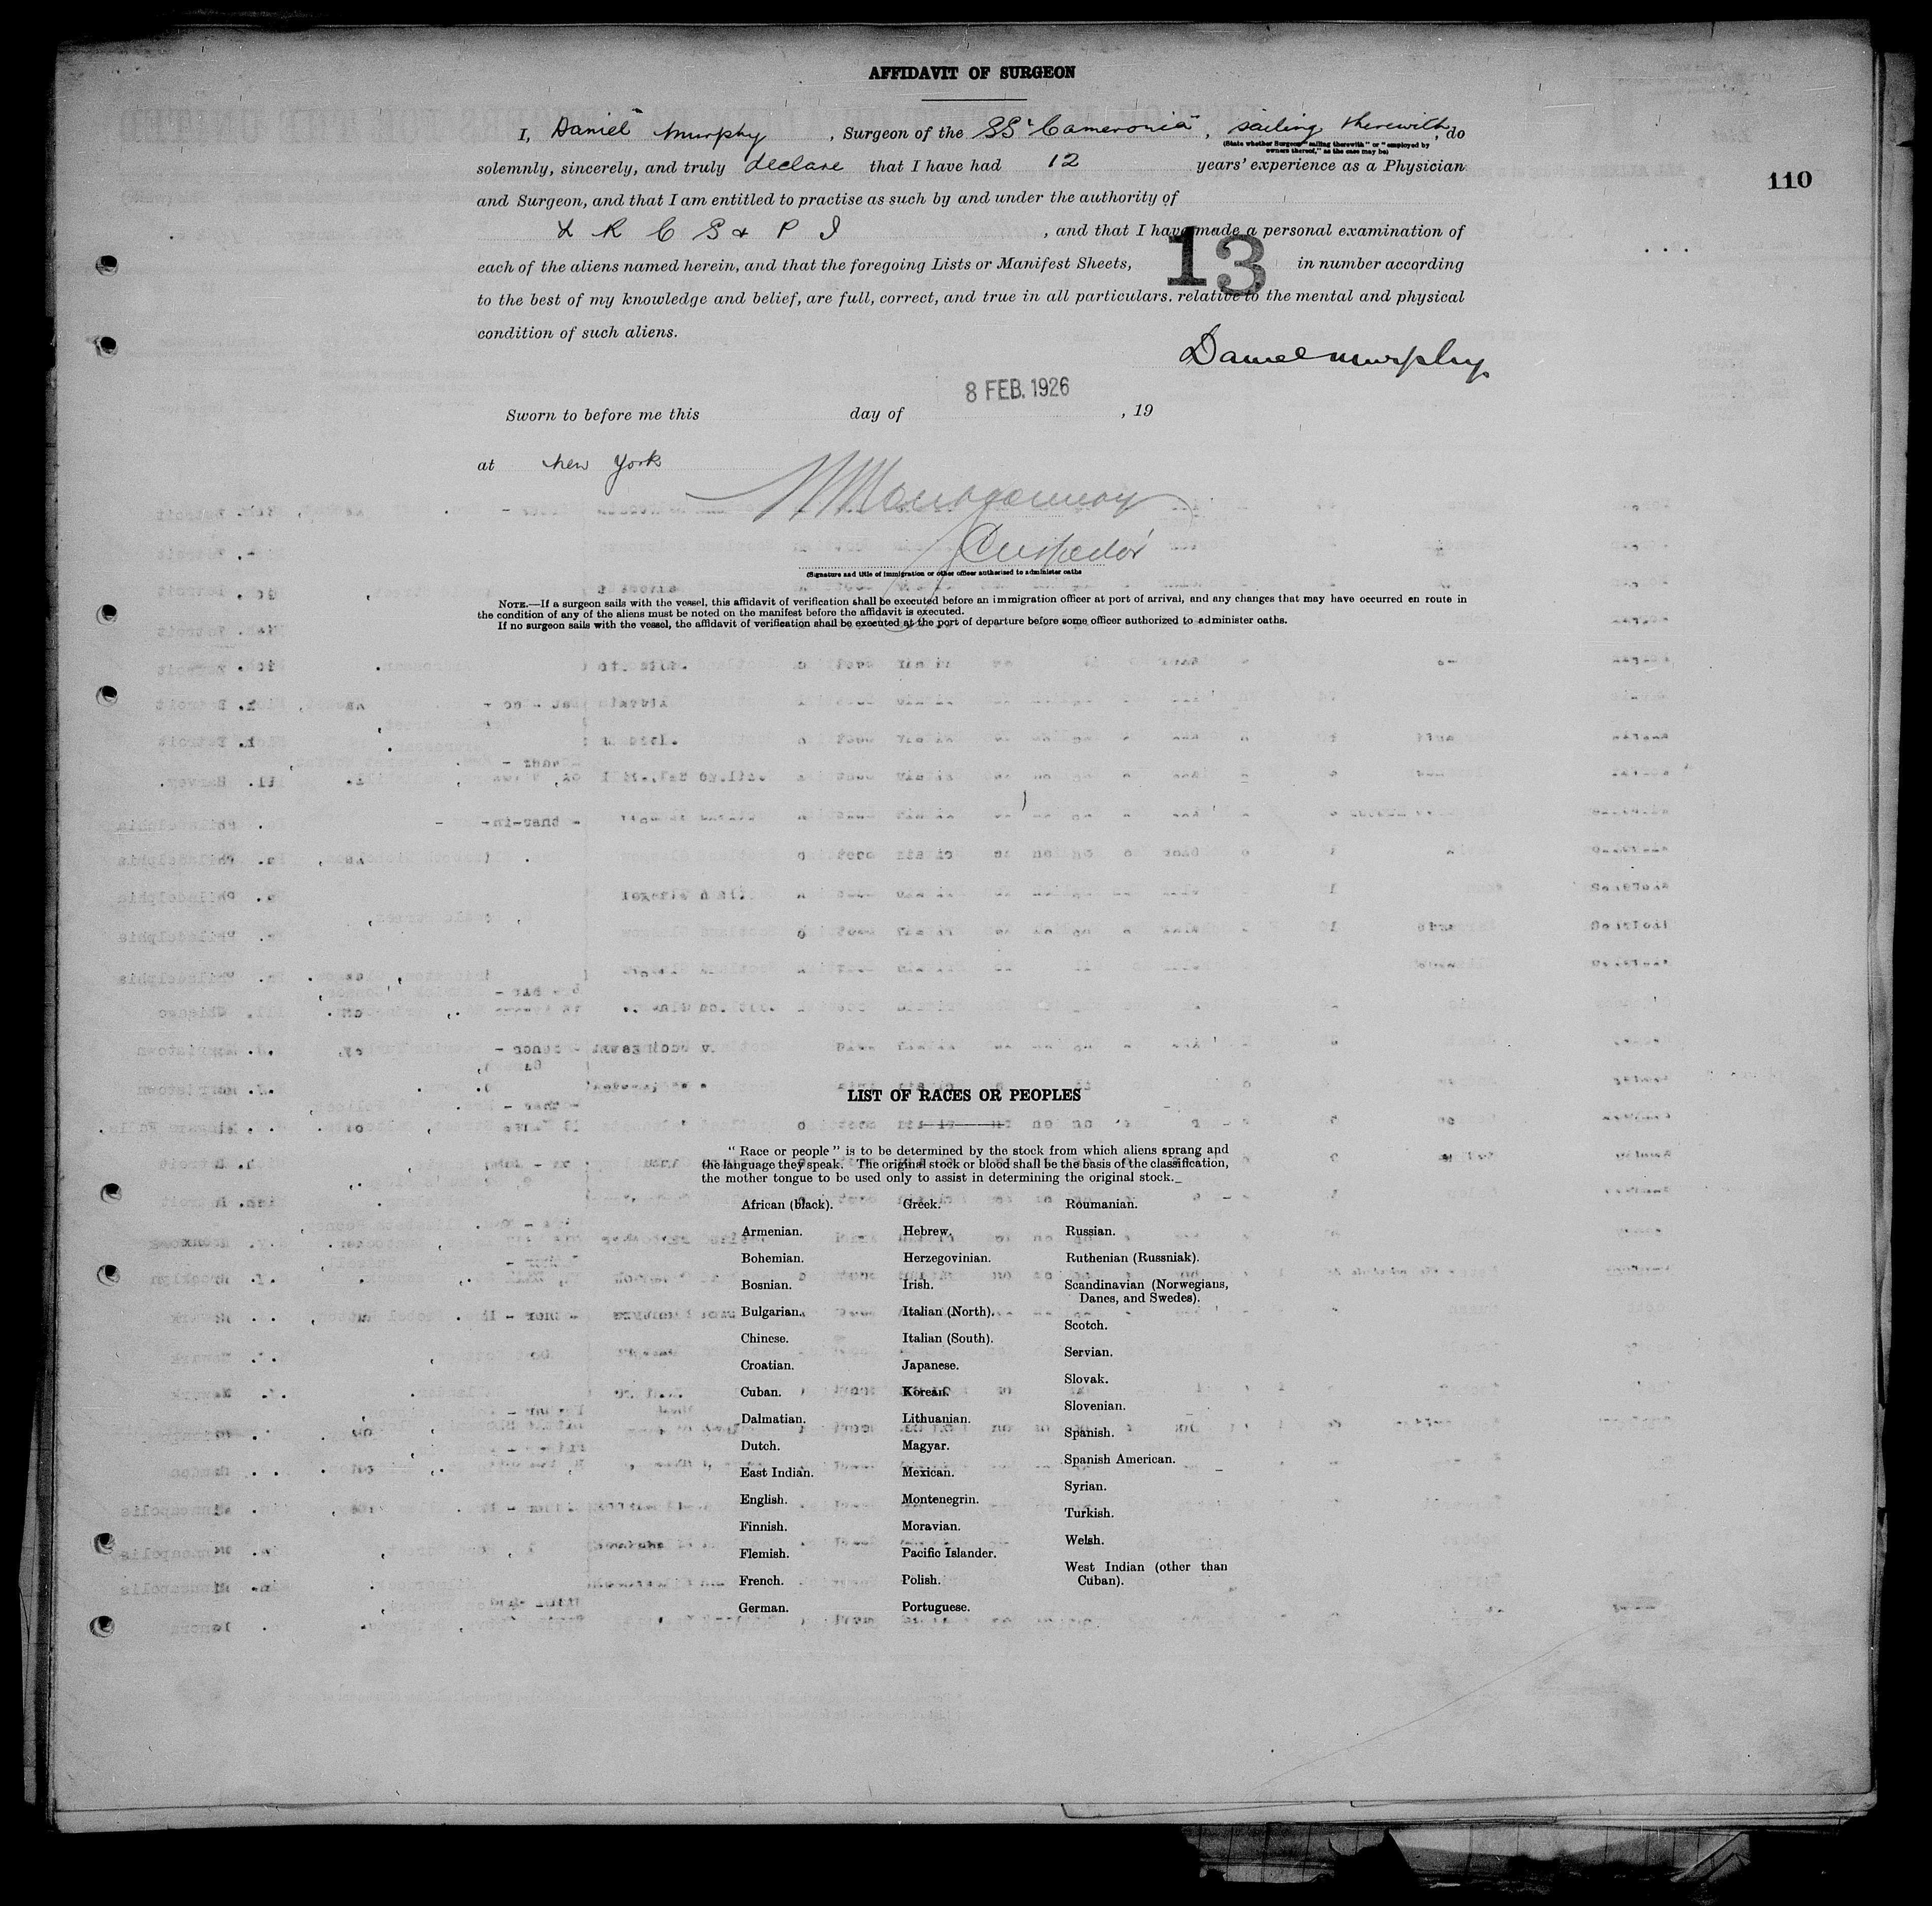 AFFIDAVIT OF SURGEON
I, Daniel Murphy, Surgeon of the SS "Cameronia", sailing therewith, do
(State whether Surgeon "sailing therewith" or "employed by
owners thereof," as the case may be)
solemnly, sincerely, and truly declare that I have had 12 years' experience as a Physician
110
and Surgeon, and that I am entitled to practise as such by and under the authority of
L R C S & P I, and that I have made a personal examination of
each of the aliens named herein, and that the foregoing Lists or Manifest Sheets, 13 in number according
to the best of my knowledge and belief, are full, correct, and true in all particulars. relative to the mental and physical
condition of such aliens.
Daniel Murphy
8 FEB. 1926
Sworn to before me this day of , 19
at New York
Montgomery
Inspector
(Signature and title of immigration or other officer authorized to administer oaths
NOTE.—If a surgeon sails with the vessel, this affidavit of verification shall be executed before an immigration officer at port of arrival, and any changes that may have occurred en route in
the condition of any of the aliens must be noted on the manifest before the affidavit is executed.
If no surgeon sails with the vessel, the affidavit of verification shall be executed at the port of departure before some officer authorized to administer oaths.
LIST OF RACES OR PEOPLES
"Race or people" is to be determined by the stock from which aliens sprang and
the language they speak. The original stock or blood shall be the basis of the classification,
the mother tongue to be used only to assist in determining the original stock.
African (black).
Armenian.
Bohemian.
Bosnian.
Bulgarian.
Chinese.
Croatian.
Cuban.
Dalmatian.
Dutch.
East Indian.
English.
Finnish.
Flemish.
French.
German.
Greek.
Hebrew.
Herzegovinian.
Irish.
Italian (North).
Italian (South).
Japanese.
Korean.
Lithuanian.
Magyar.
Mexican.
Montenegrin.
Moravian.
Pacific Islander.
Polish.
Portuguese.
Roumanian.
Russian.
Ruthenian (Russniak).
Scandinavian (Norwegians,
Danes, and Swedes).
Scotch.
Servian.
Slovak.
Slovenian.
Spanish.
Spanish American.
Syrian.
Turkish.
Welsh.
West Indian (other than
Cuban).